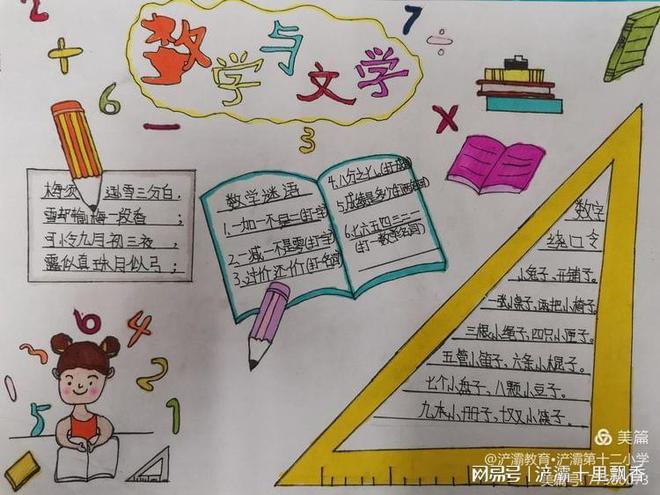 2
7
数学与文学
6
3
梅须 逊雪三分白,
雪却输梅一段香;
可怜九月初三夜,
露似真珠月似弓;
数学谜语
1.一加一不是二(打一字)
2.一减一不是零(打一字)
3.讨价还价(打一名词)
4.八分之七(打一成语)
5.成绩是多少(打一数学名词)
6.七六五四三二一
(打一数学名词)
数字
绕口令
小兔子,开铺子。
一张小桌子,两把小椅子。
三根小绳子,四只小匣子。
五管小笛子,六条小棍子。
七个小盘子,八颗小豆子。
九本小册子,十双小筷子。
6
4
7
3
1
5
2
1
美篇
@浐灞教育·浐灞第十二小学
网易号 | 浐灞十里飘香